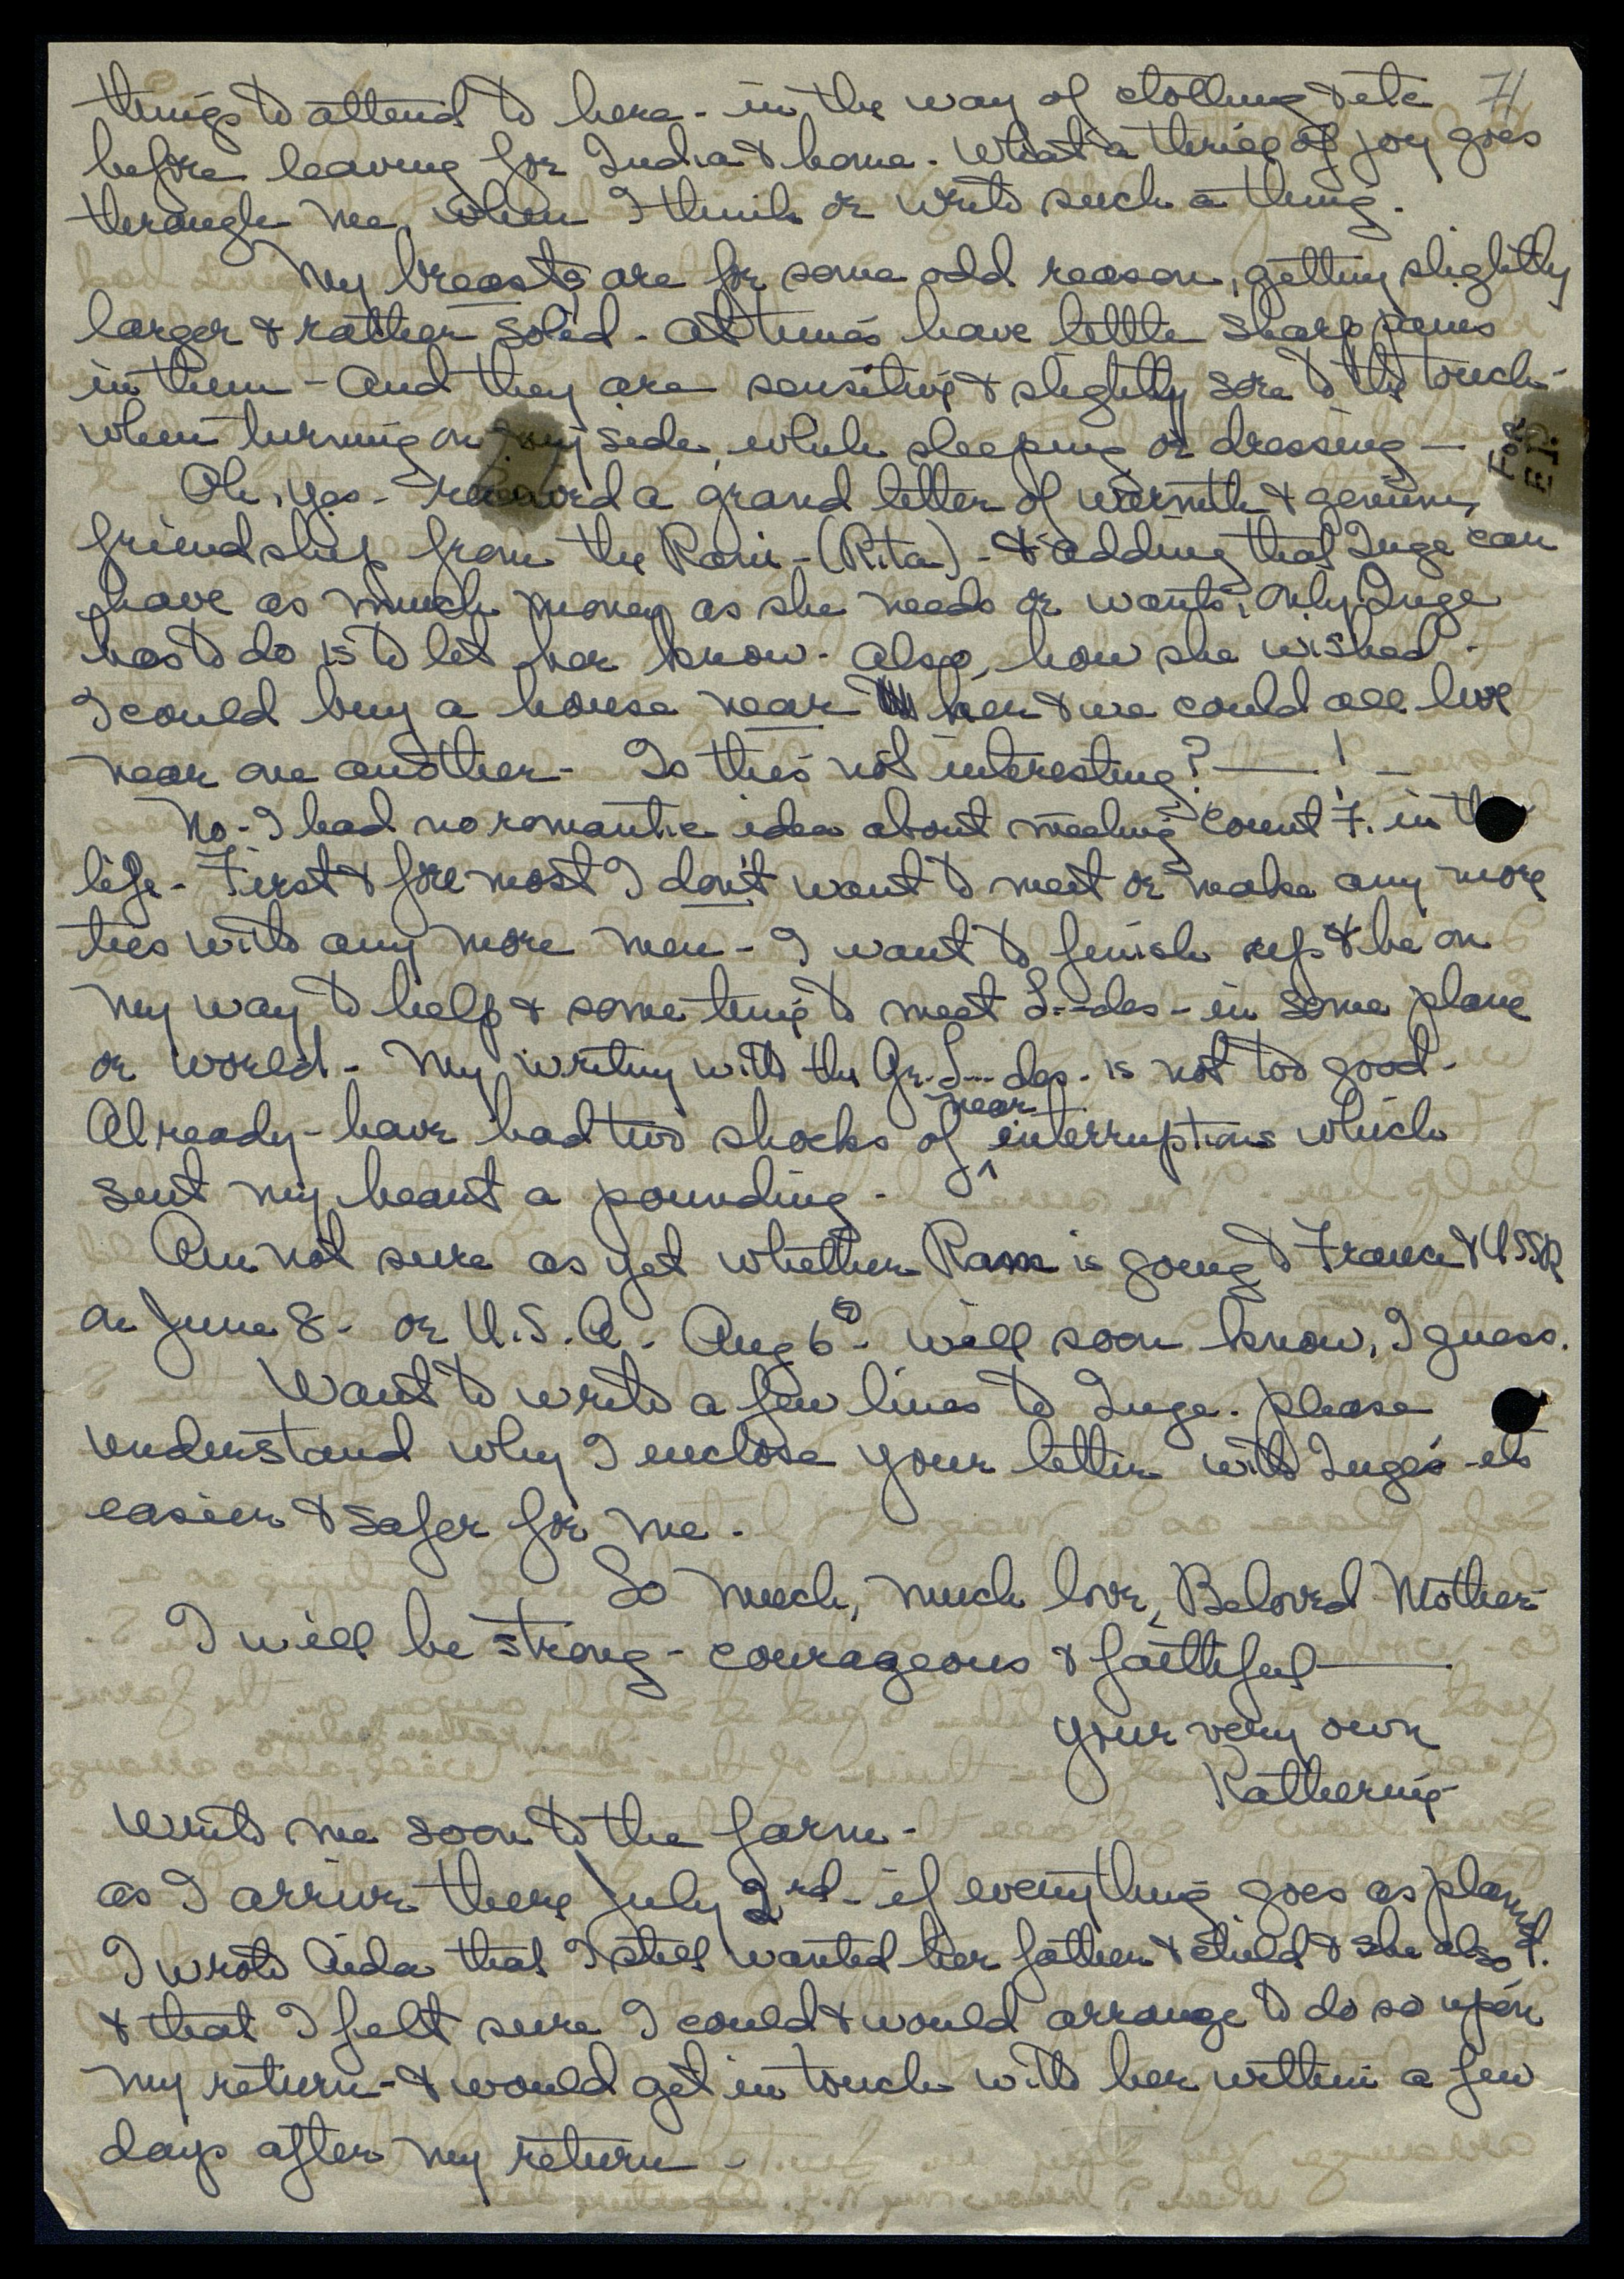 7/
things to attend to here - in the way of clothing & etc
before leaving for India & home. What a thrill of joy goes
through me, when I think or write such a thing.
My breasts are for some odd reason, getting slightly
larger & rather solid - at times have little sharp pains
in them - And they are sensitive & slightly sore to the touch -
when turning on my side, while sleeping or dressing —
FOR
E.I.
Oh, yes - received a grand letter of warmth & genuine
friendship from the Rani - (Rita) - & adding that Inge can
have as much money as she needs or wants, only Inge
has to do is to let her know. Also, how she wished -
I could buy a house near her & we could all live
near one another - Is this not interesting? — ! —
No - I had no romantic idea about meeting Count F. in th
life - First & foremost I don't want to meet or make any more
ties with any more men - I want to finish up & be on
my way to help & some time to meet L--des - in some plane
or world - My writing with the Gr. L--- des - is not too good -
Already - have had two shocks of near interruptions which
sent my heart a pounding -
Am not sure as yet whether Ram is going to France & USSR
on June 8 - or U.S.A. - Aug 6 - will soon know, I guess.
Want to write a few lines to Inge. Please
understand why I enclose your letter with Inge's - its
easier & safer for me.
So much, much love, Beloved Mother -
I will be strong - courageous & faithful —
Your very own
Katherine
Write me soon to the farm -
as I arrive there July 2nd - if everything goes as planned.
I wrote Aida that I still wanted her father & child & she also.
& that I felt sure I could & would arrange to do so upon
my return - & would get in touch with her within a few
days after my return -